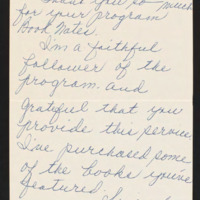 Thank you so much
for your program
Book Notes
I'm a faithful
follower of the
program and
grateful that you
provide this service
I've purchased some
of the books you've
featured